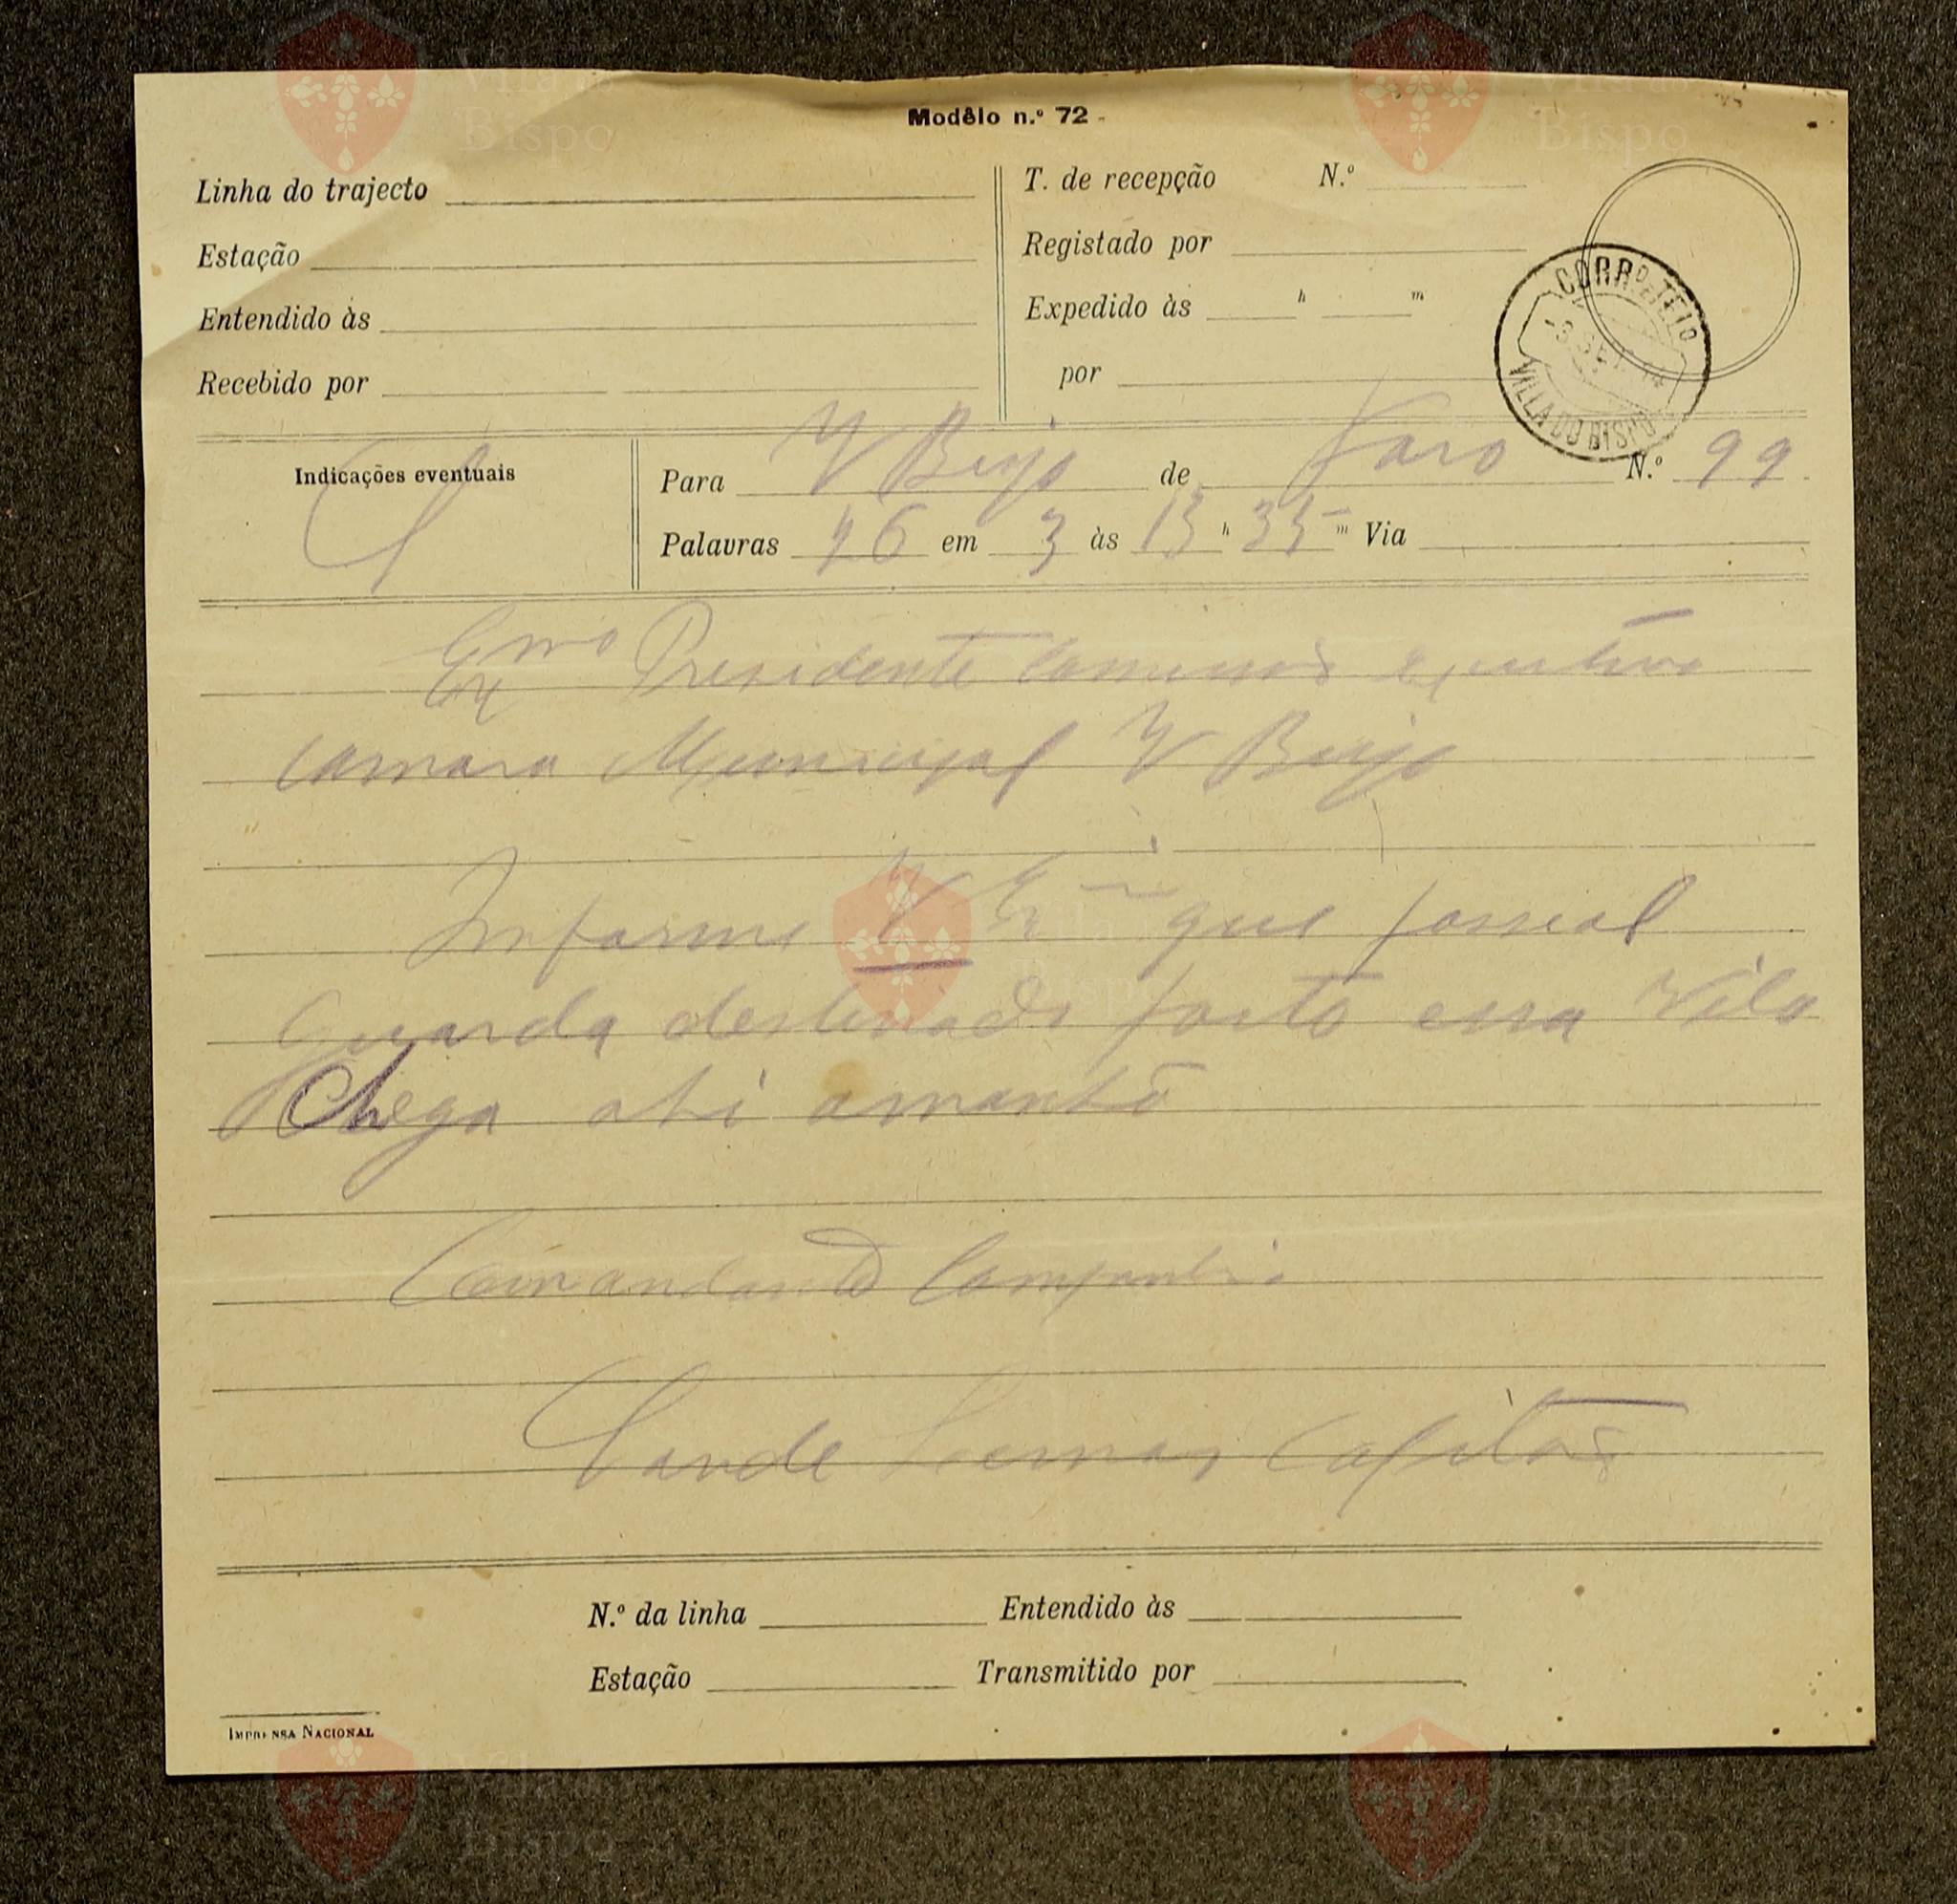 Modêlo n.º 72
Linha do trajecto
Estação
Entendido às
Recebido por
T. de recepção N.º
Registado por
Expedido às h m
por
CORRO E TELO
-3 SET
VILLA DO BISPO
Indicações eventuais
Para V Bispo de Faro N.º 99
Palavras 26 em 3 às 13 h 35 m Via
Exmo Presidente Comissão executiva
Camara Municipal V Bispo
Informo V Ex que pessoal
Guarda destinado posto essa Vila
Chega ahi amanhã
Comandante Companhia
Lemos Capitão
N.º da linha Entendido às
Estação Transmitido por
IMPRENSA NACIONAL
Vila do Bispo
Vila do Bispo
Vila do Bispo
Vila do Bispo
Vila do Bispo